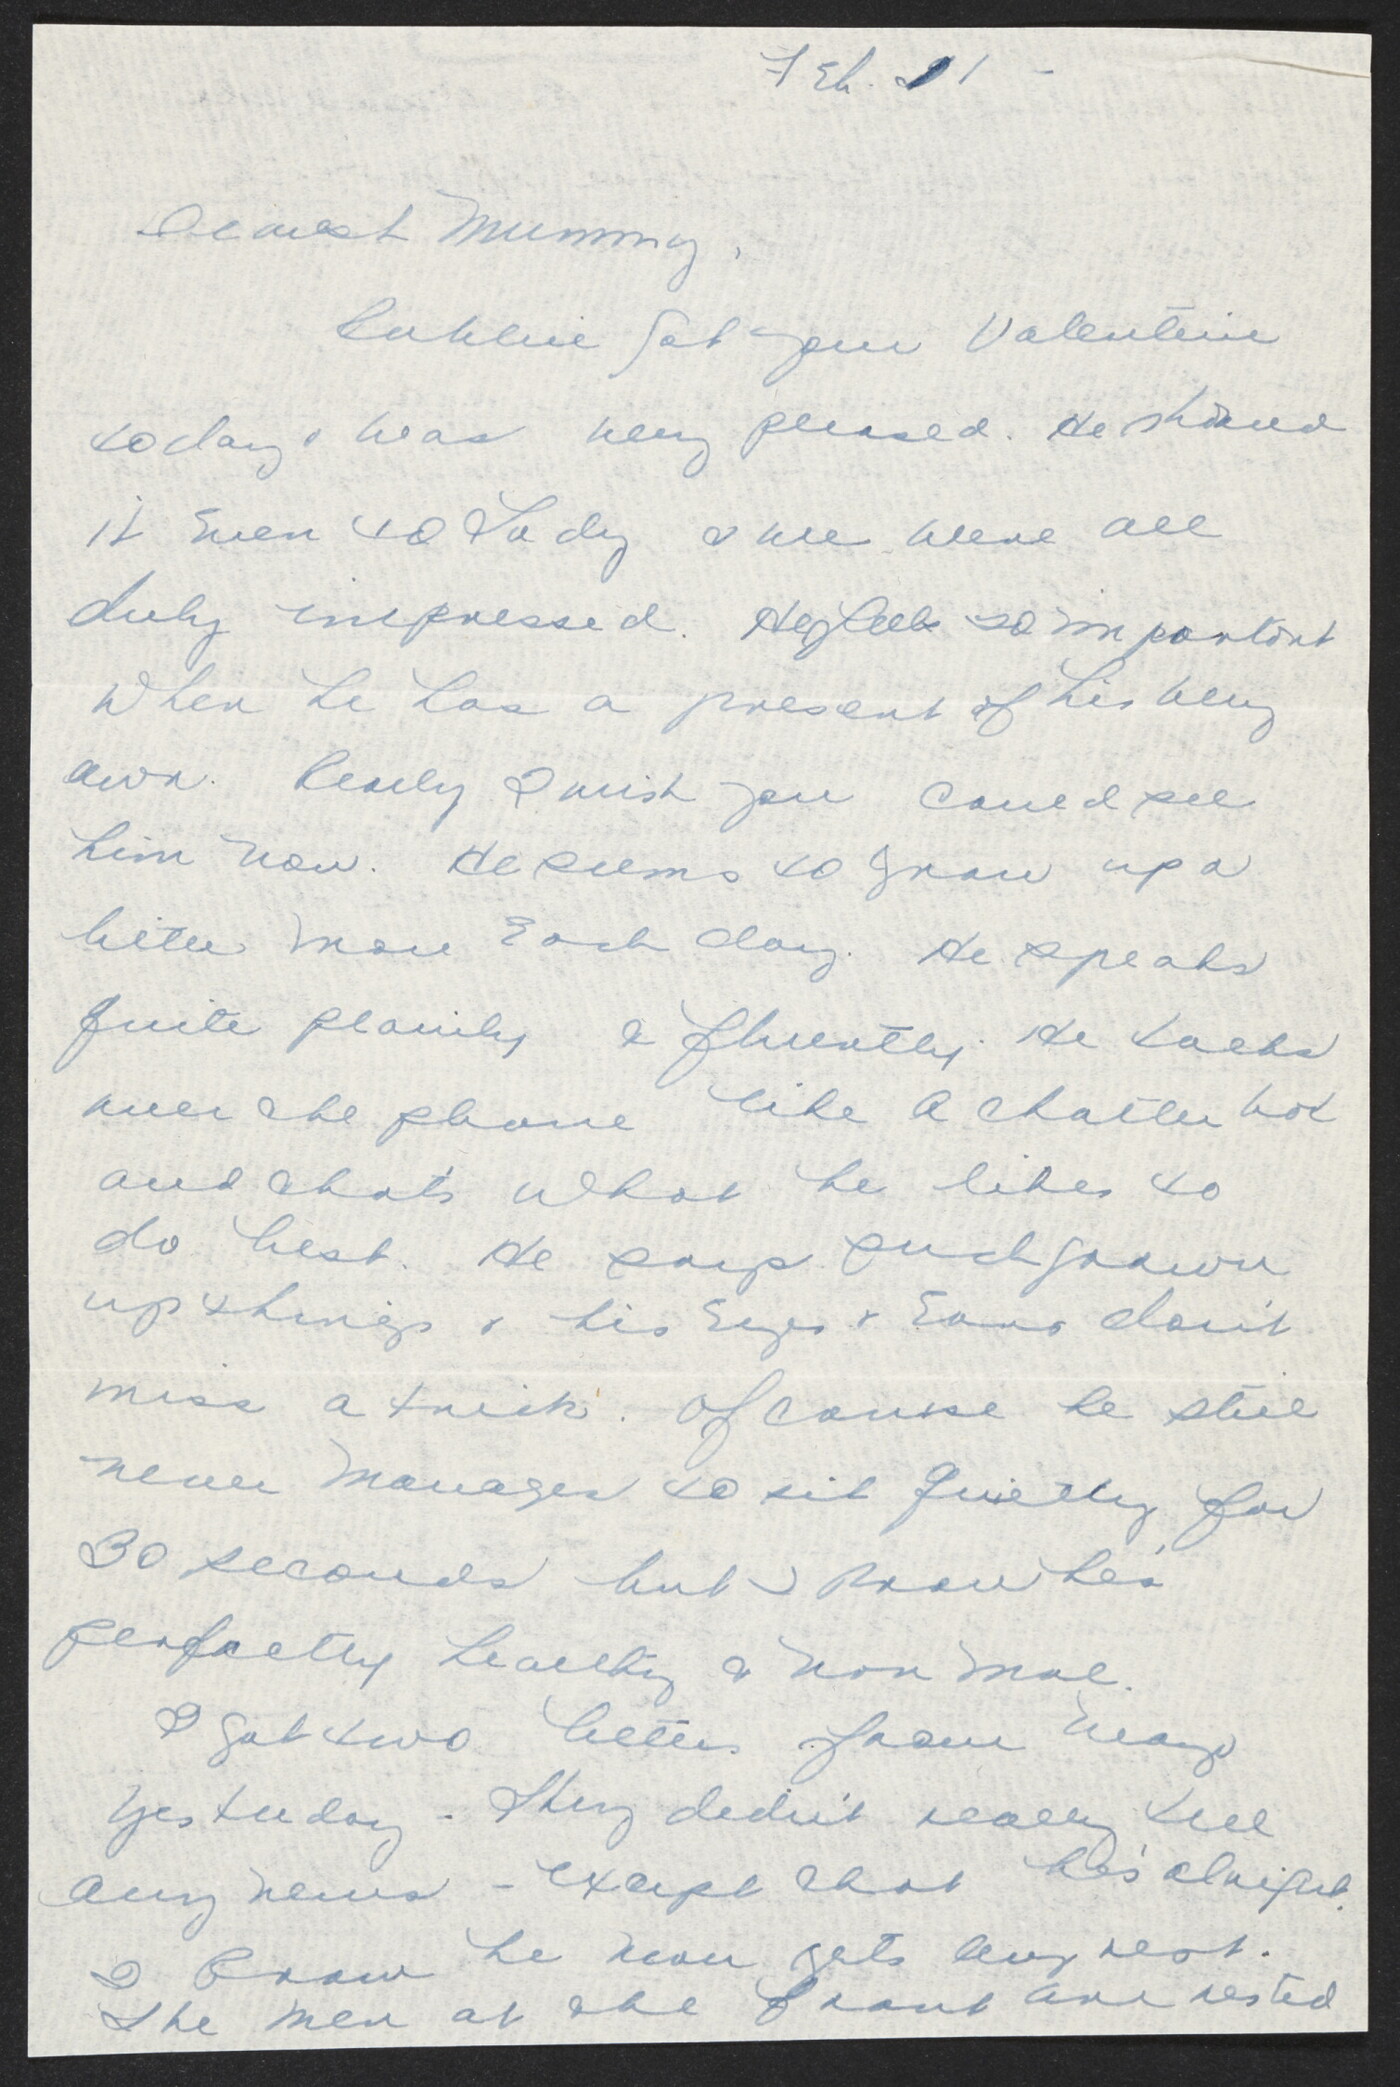 Feb. 11 -
Dearest Mummy,
got your Valentine
today & was very pleased. He showed
it even to Lady & we were all
duly impressed. He feels so important
when he has a present of his very
own. Really I wish you could see
him now. He seems to grow up a
little more each day. He speaks
quite plainly & fluently. He talks
over the phone like a chatter box
and that's what he likes to
do best. He says such grown
up things & his eyes & ears don't
miss a trick. Of course he still
never manages to sit quietly for
30 seconds but I know he's
perfectly healthy & normal.
I got two letters from
yesterday - They didn't really tell
any news - except that he's alright.
I know he now gets any rest.
The men at the front are rested